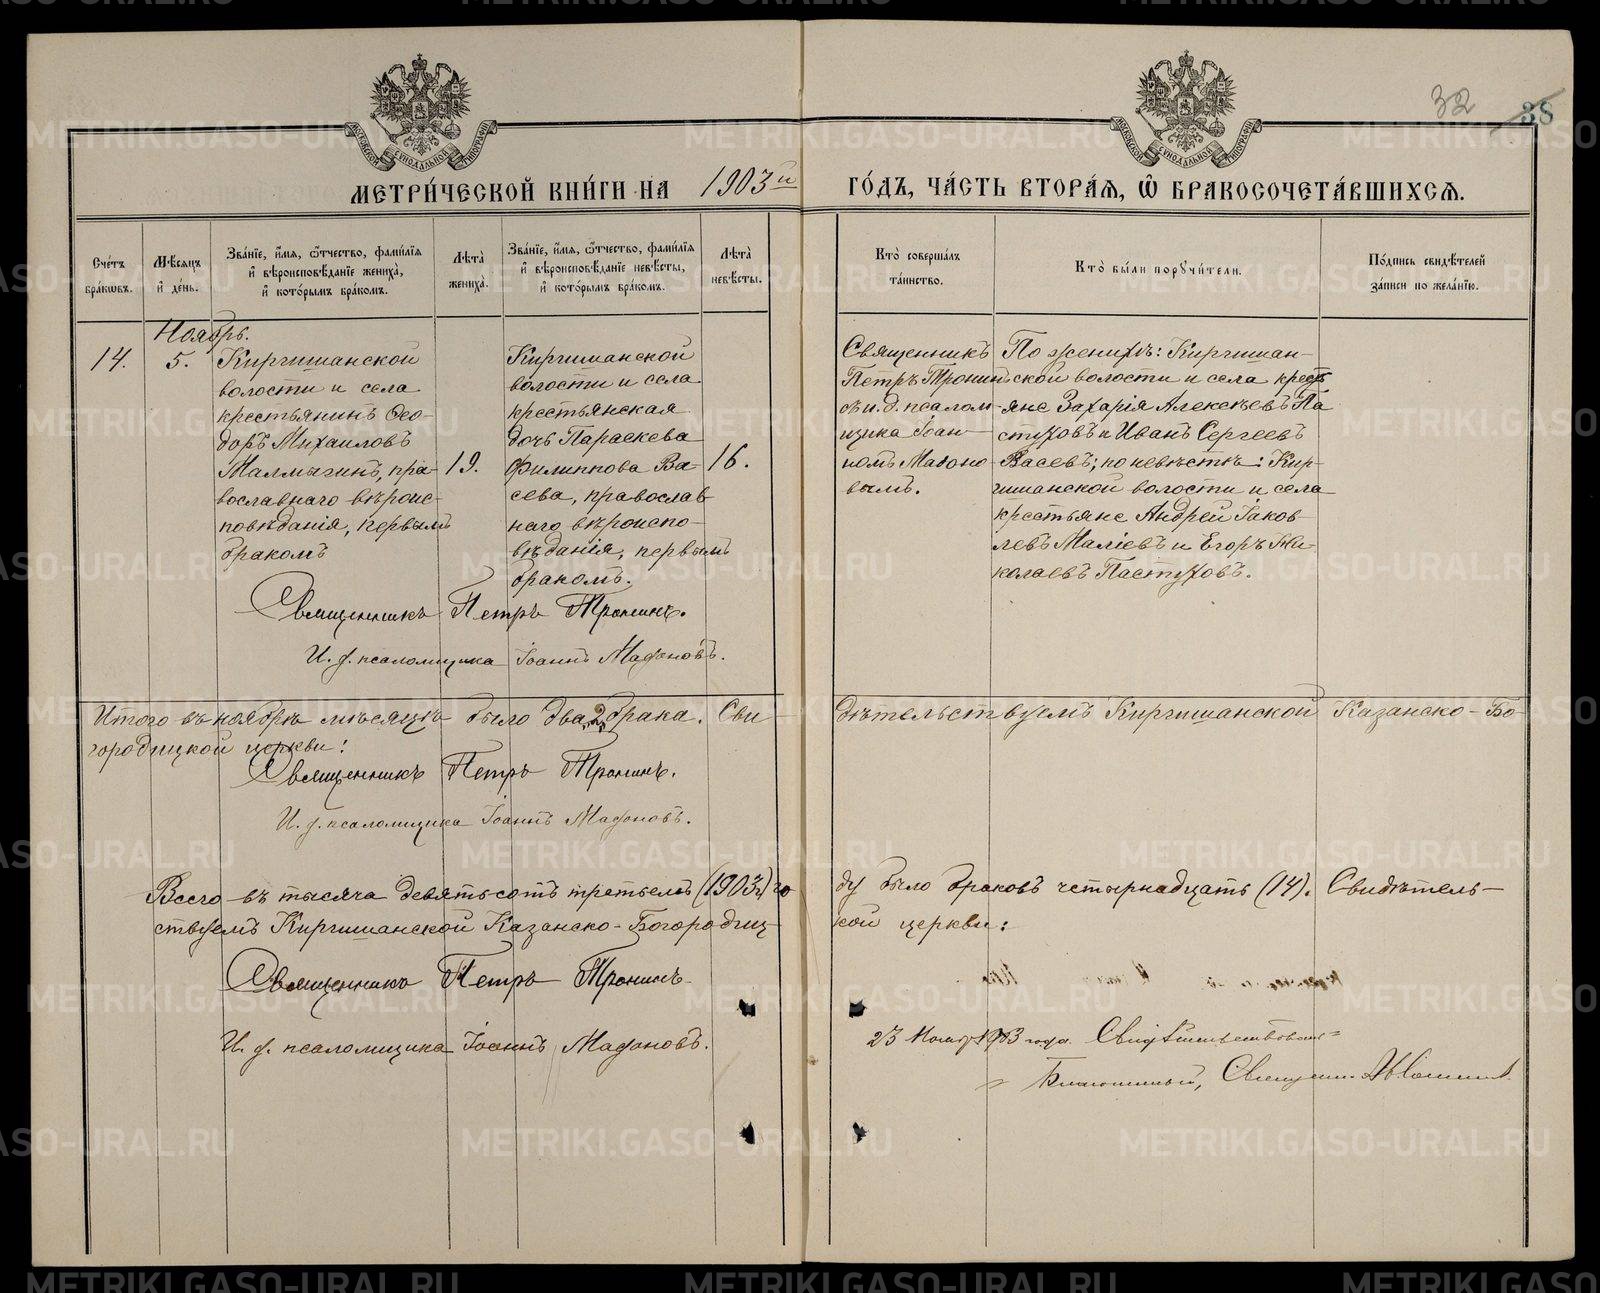 METRIKI.GASO-URAL.RU
32
38
МОСКОВСКОЙ СѴНОДАЛЬНОЙ ТИПОГРАФІИ
МОСКОВСКОЙ СѴНОДАЛЬНОЙ ТИПОГРАФІИ
МЕТРИ́ЧЕСКОЙ КНИ́ГИ НА 1903й
ГО́ДЪ, ЧА́СТЬ ВТОРА́Ѧ, Ѡ҆ БРАКОСОЧЕТА́ВШИХСѦ.
Сче́тъ
бра́кѡвъ.
Мѣ́сяцъ
и҆ де́нь.
Зва́нїе, и҆́мѧ, ѻ҆́тчество, фами́лїѧ
и҆ вѣроисповѣ́данїе жениха̀,
и҆ кото́рымъ бра́комъ.
Лѣта̀
жениха̀.
Зва́нїе, и҆́мѧ, ѻ҆́тчество, фами́лїѧ
и҆ вѣроисповѣ́данїе невѣ́сты,
и҆ кото́рымъ бра́комъ.
Лѣта̀
невѣ́сты.
Кто̀ соверша́лъ
та́инство.
Кто̀ бы́ли порꙋчи́тели.
По́дпись свидѣ́телей
за́писи по жела́нїю.
Ноябрь.
14.
5.
Киргишанской
волости и села
крестьянинъ Ѳео-
доръ Михаиловъ
Малмыгинъ, пра-
вославнаго вѣроис-
повѣданія, первымъ
бракомъ
19.
Киргишанской
волости и села
крестьянская
дочь Параскева
Филиппова Ва-
сева, православ-
наго вѣроиспо-
вѣданія, первымъ
бракомъ.
16.
Священникъ
Петръ Тронинъ
съ и. д. псалом-
щика Іоан-
номъ Мафоно
вымъ.
По женихѣ: Киргишан-
ской волости и села кресть
яне Захарія Алексѣевъ Па
стуховъ и Иванъ Сергеевъ
Васевъ; по невѣстѣ: Кир-
гишанской волости и села
крестьяне Андрей Іаков-
левъ Маліевъ и Егоръ Ни-
колаевъ Пастуховъ.
Священникъ Петръ Тронинъ.
И. д. псаломщика Іоаннъ Мафоновъ.
Итого въ ноябрѣ мѣсяцѣ было два 2 брака. Сви-
дѣтельствуемъ Киргишанской Казанско-Бо-
городицкой церкви:
Священникъ Петръ Тронинъ.
И. д. псаломщика Іоаннъ Мафоновъ.
Всего въ тысяча девятьсотъ третьемъ (1903м) го
ду было браковъ четырнадцать (14). Свидѣтель-
ствуемъ Киргишанской Казанско-Богородиц-
кой церкви:
Священникъ Петръ Тронинъ
И. д. псаломщика Іоаннъ Мафоновъ.
23 1903 года. Свидѣтельствовалъ
Благочинный, Священ.